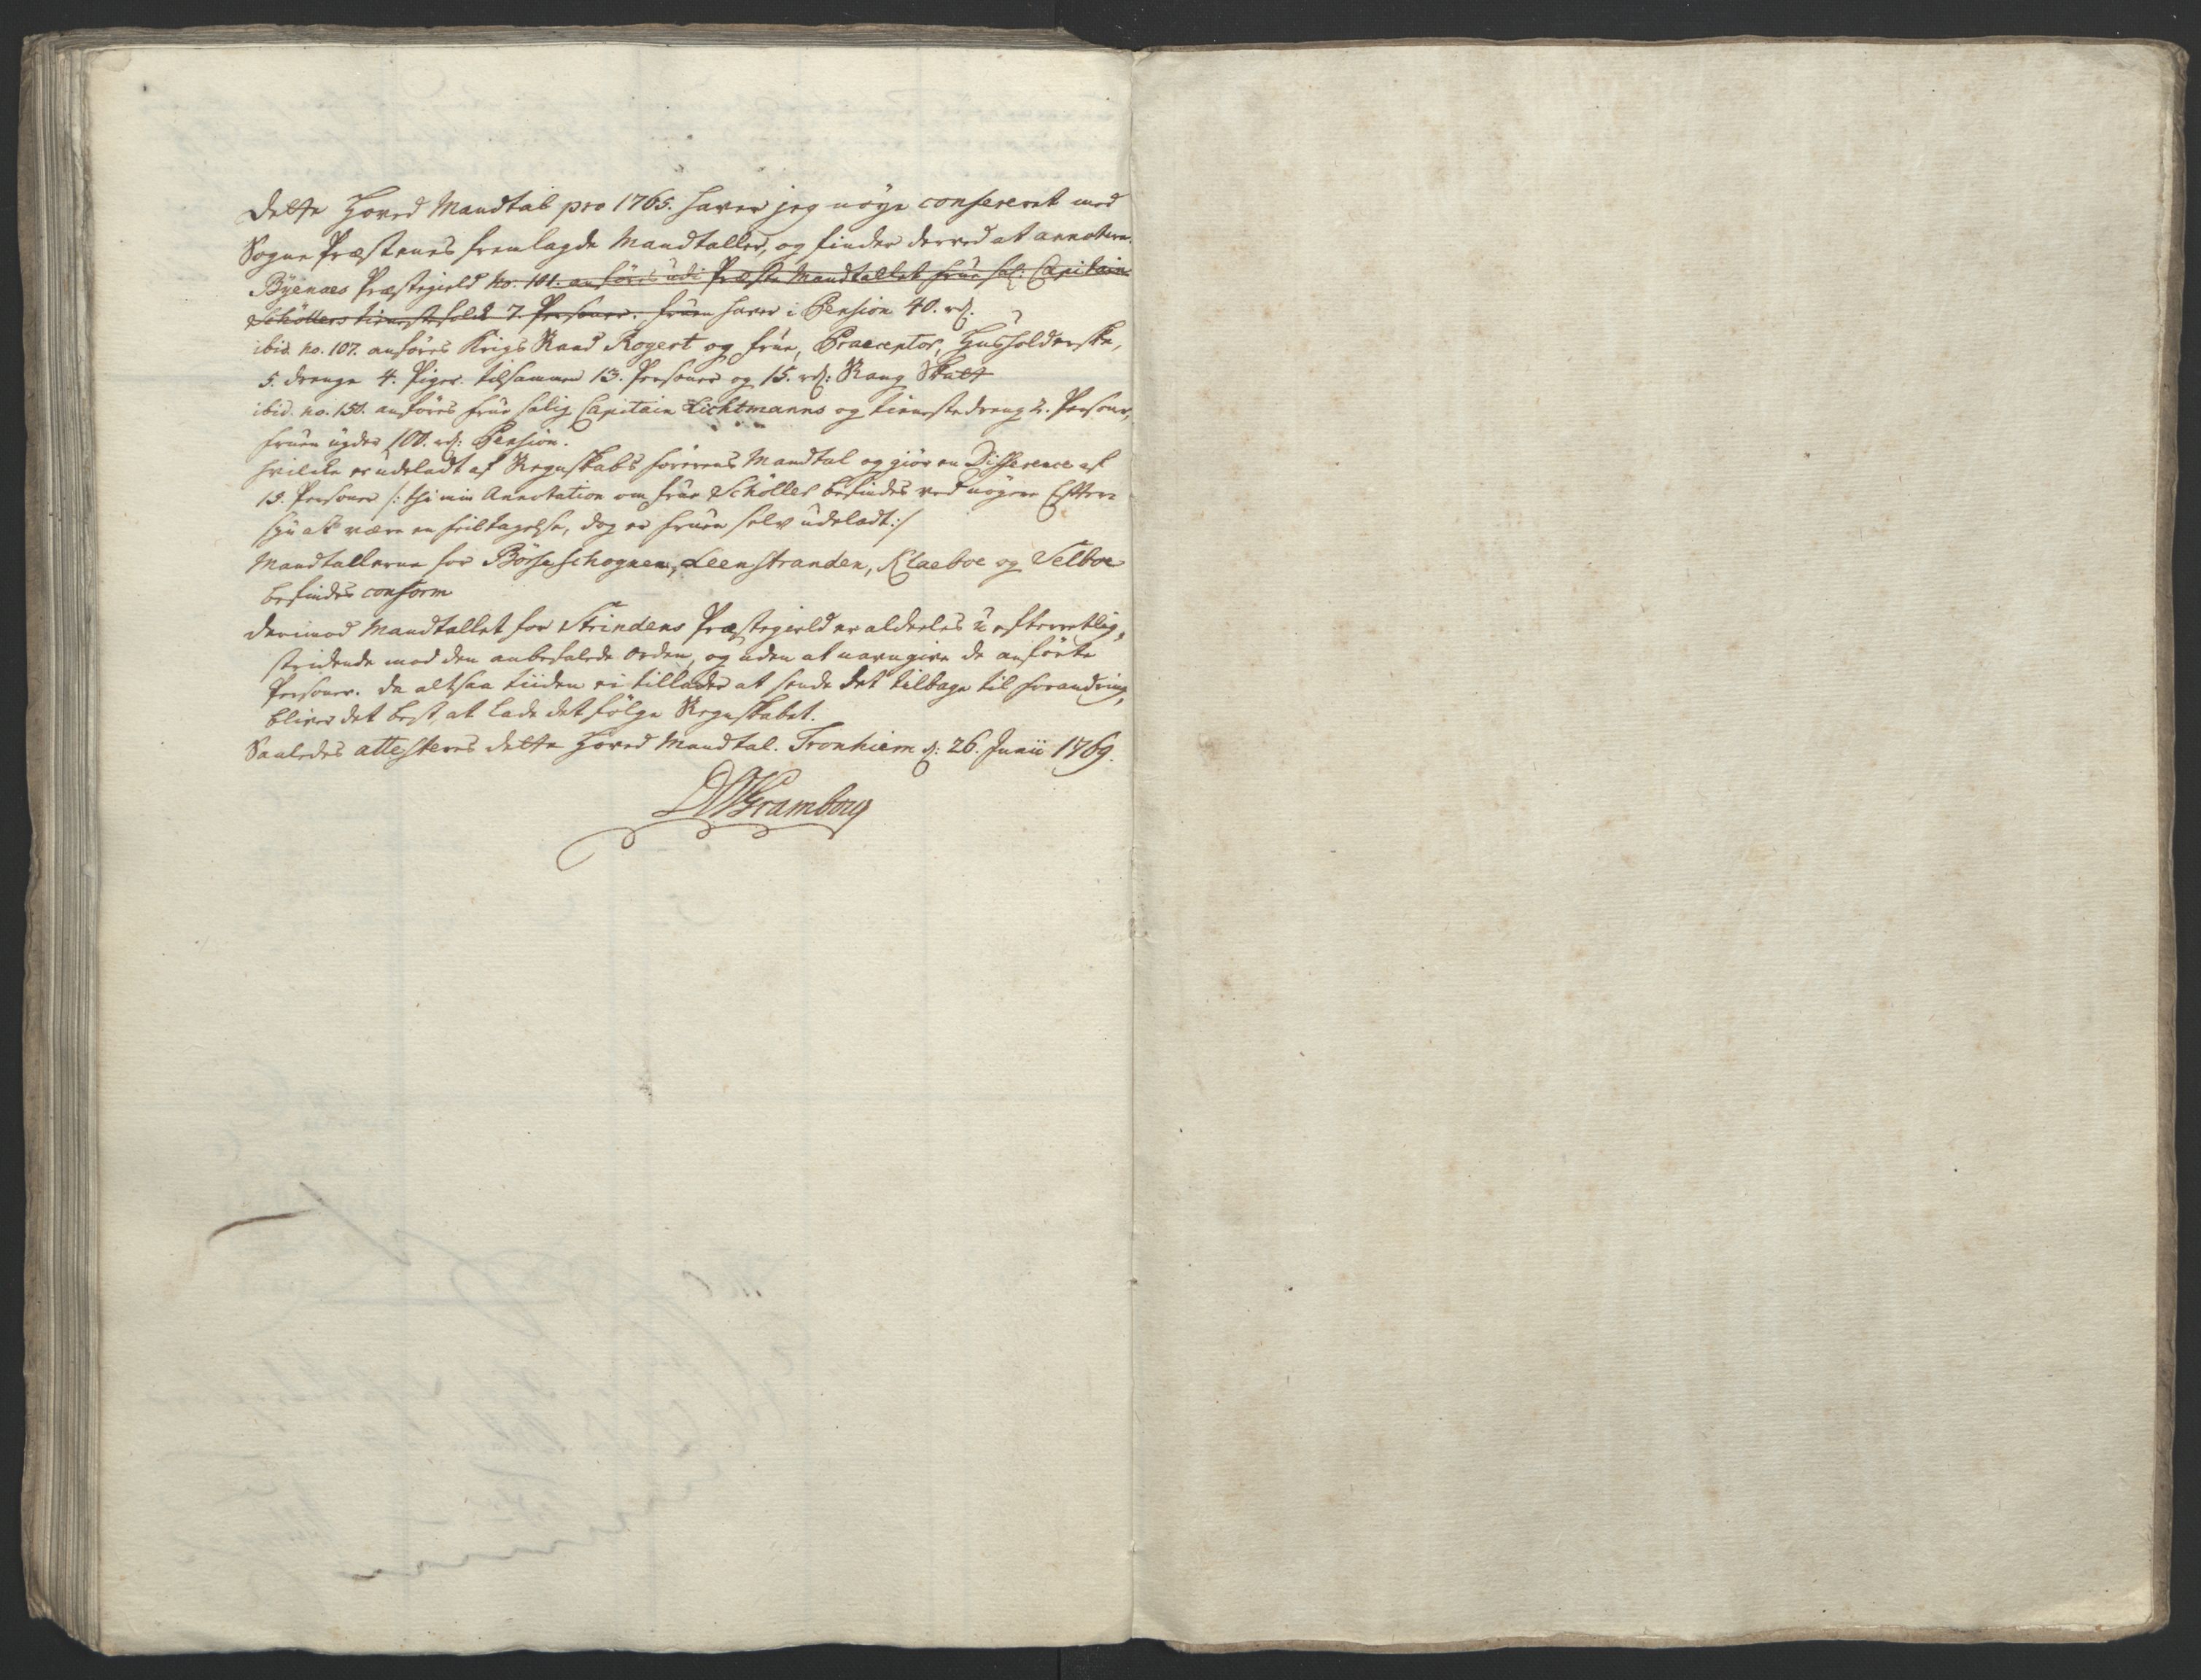 Dette Hoved Mandtal pro 1765. haver jeg nöye confereret med
Sogne Præstenes fremlagde Mandtaller, og finder derved at annotere.
Byenæs Præstegield No. 101. anföres udi Præste Mandtallet Frue sal: Capitain
Schöllers tienestefolk 7. Personer. Fruen haver i Pension 40. rd.
ibid. no. 107. anföres Krigs Raad Rogert og Frue, Praeceptor, Huusholderske,
5. drenge 4. Piger. tilsammen 13. Personer og 15. rd: Rang Skatt
ibid. no. 150. anföres Frue salig Capitain Lichtmanns og tienestedreng 2. Personer,
Fruen nyder 100. rd: Pension.
hvilke er udeladt af Regnskabsförerens Mandtal og giör en Difference af
15. Personer /: thi min Annotation om Frue Schöller befindes ved nöyere Efter-
syn at være en feiltagelse, dog er Fruen selv udeladt:/
Mandtallerne for Börseschognen, Leenstranden, Klaeboe og Selboe
befindes conform
derimod Mandtallet for Strindens Præstegield er aldeeles u-efterretlig,
stridende mod den anbefalede Orden, og uden at navngive de anförte
Personer. da altsaa tiiden ei tillader at sende det tilbage til forandring,
bliver det best, at lade det fölge Regnskabet.
Saaledes attesteres dette Hoved Mandtal. Tronhiem d: 26. Junii 1769.